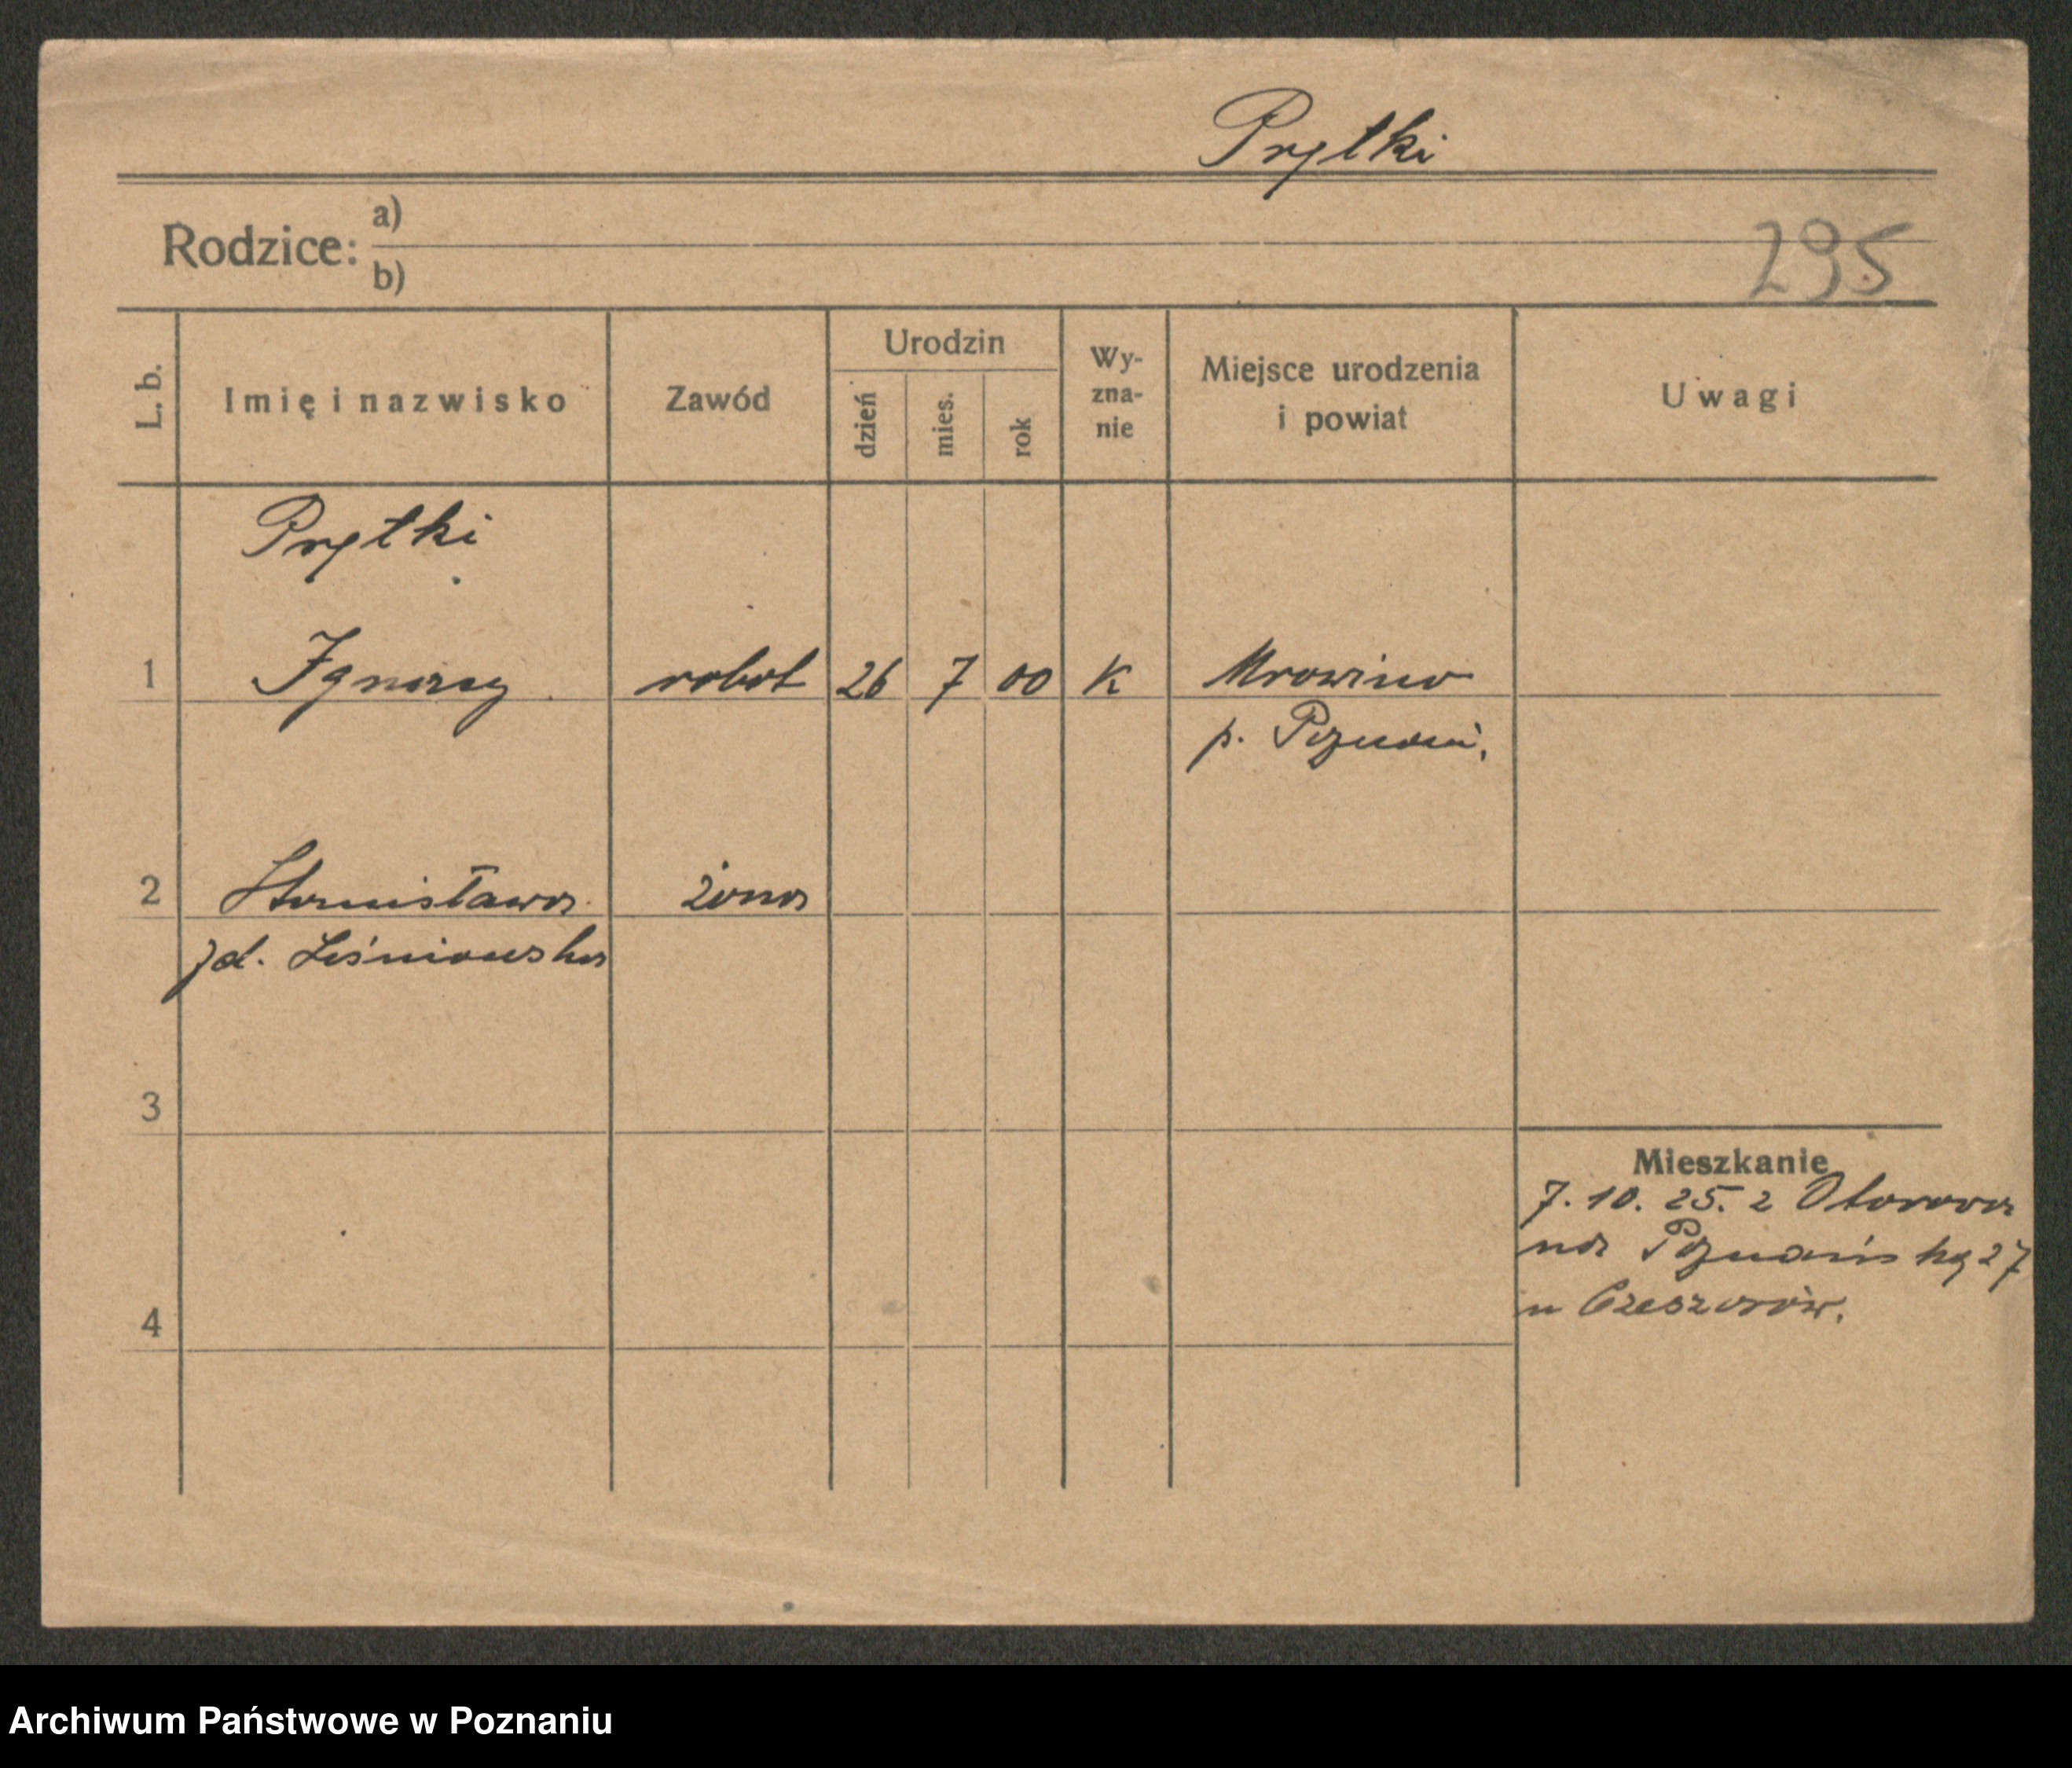 Prętki
Rodzice:
a)
b)
295
L. b.
Imię i nazwisko
Zawód
Urodzin
dzień
mies.
rok
Wy-
zna-
nie
Miejsce urodzenia
i powiat
Uwagi
Prętki
1 Ignacy robot 26 7 00 K Mrowino
p. Poznań,
2 Stanisława żona
zd. Leśniewska
3
Mieszkanie
7. 10. 25. z Otorowa
na Poznańs ką 27
u
4
Archiwum Państwowe w Poznaniu